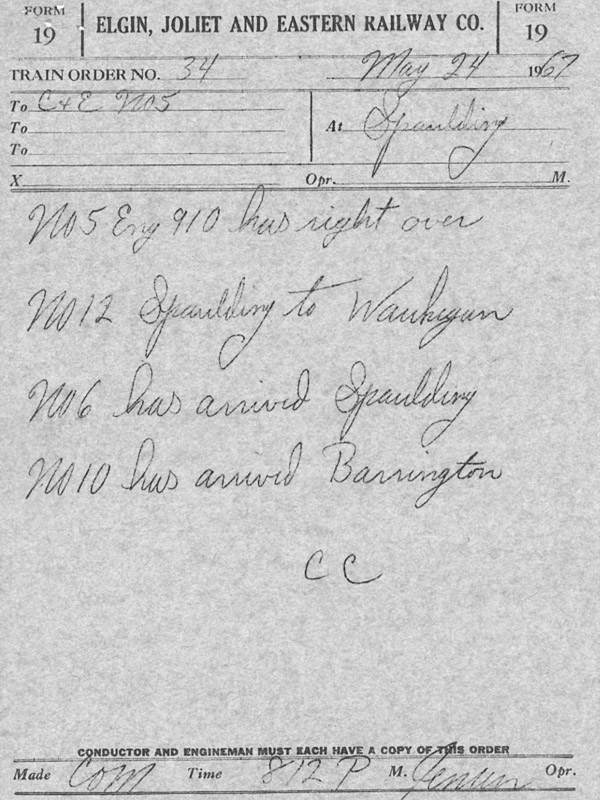 FORM 19 ELGIN, JOLIET AND EASTERN RAILWAY CO. FORM 19
TRAIN ORDER NO. 34 May 24 1967
To C+E No5
To At Spaulding
To
X Opr. M.
No5 Eng 910 has right over
No12 Spaulding to Waukegan
No6 has arrived Spaulding
No10 has arrived Barrington
CC
CONDUCTOR AND ENGINEMAN MUST EACH HAVE A COPY OF THIS ORDER
Made Com Time 812 P M. Jensen Opr.